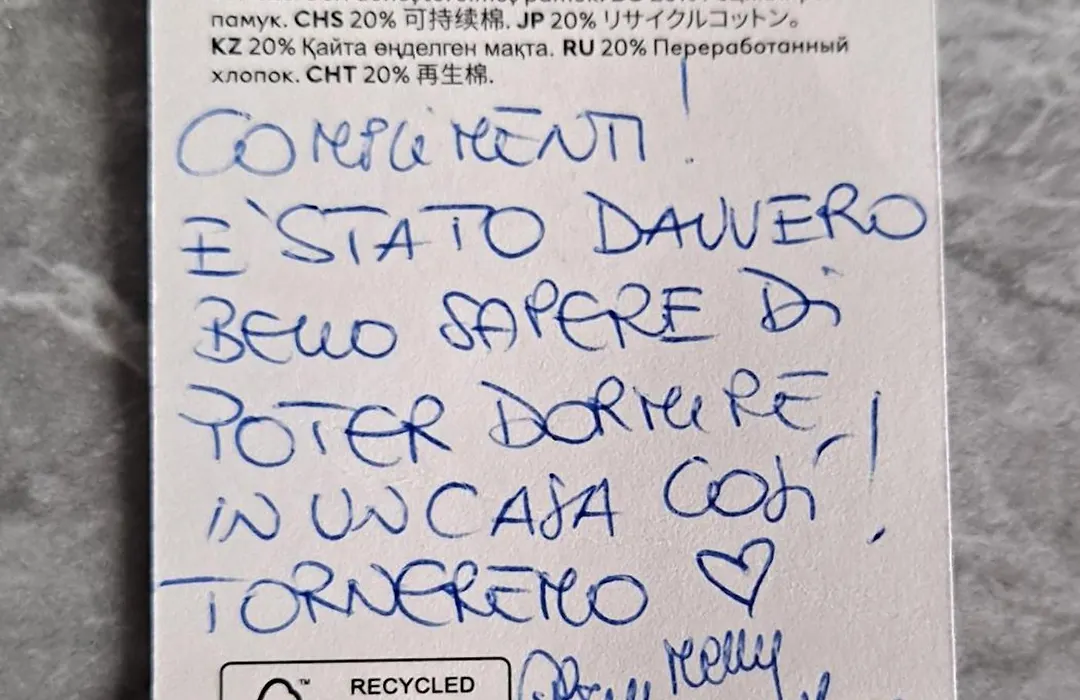 памук. CHS 20% 可持续棉. JP 20% リサイクルコットン。
KZ 20% Қайта өңделген мақта. RU 20% Переработанный
хлопок. CHT 20% 再生棉.
COMPLIMENTI!
E' STATO DAVVERO
BELLO SAPERE DI
POTER DORMIRE
IN UN CASA COSÌ!
TORNEREMO
™ RECYCLED